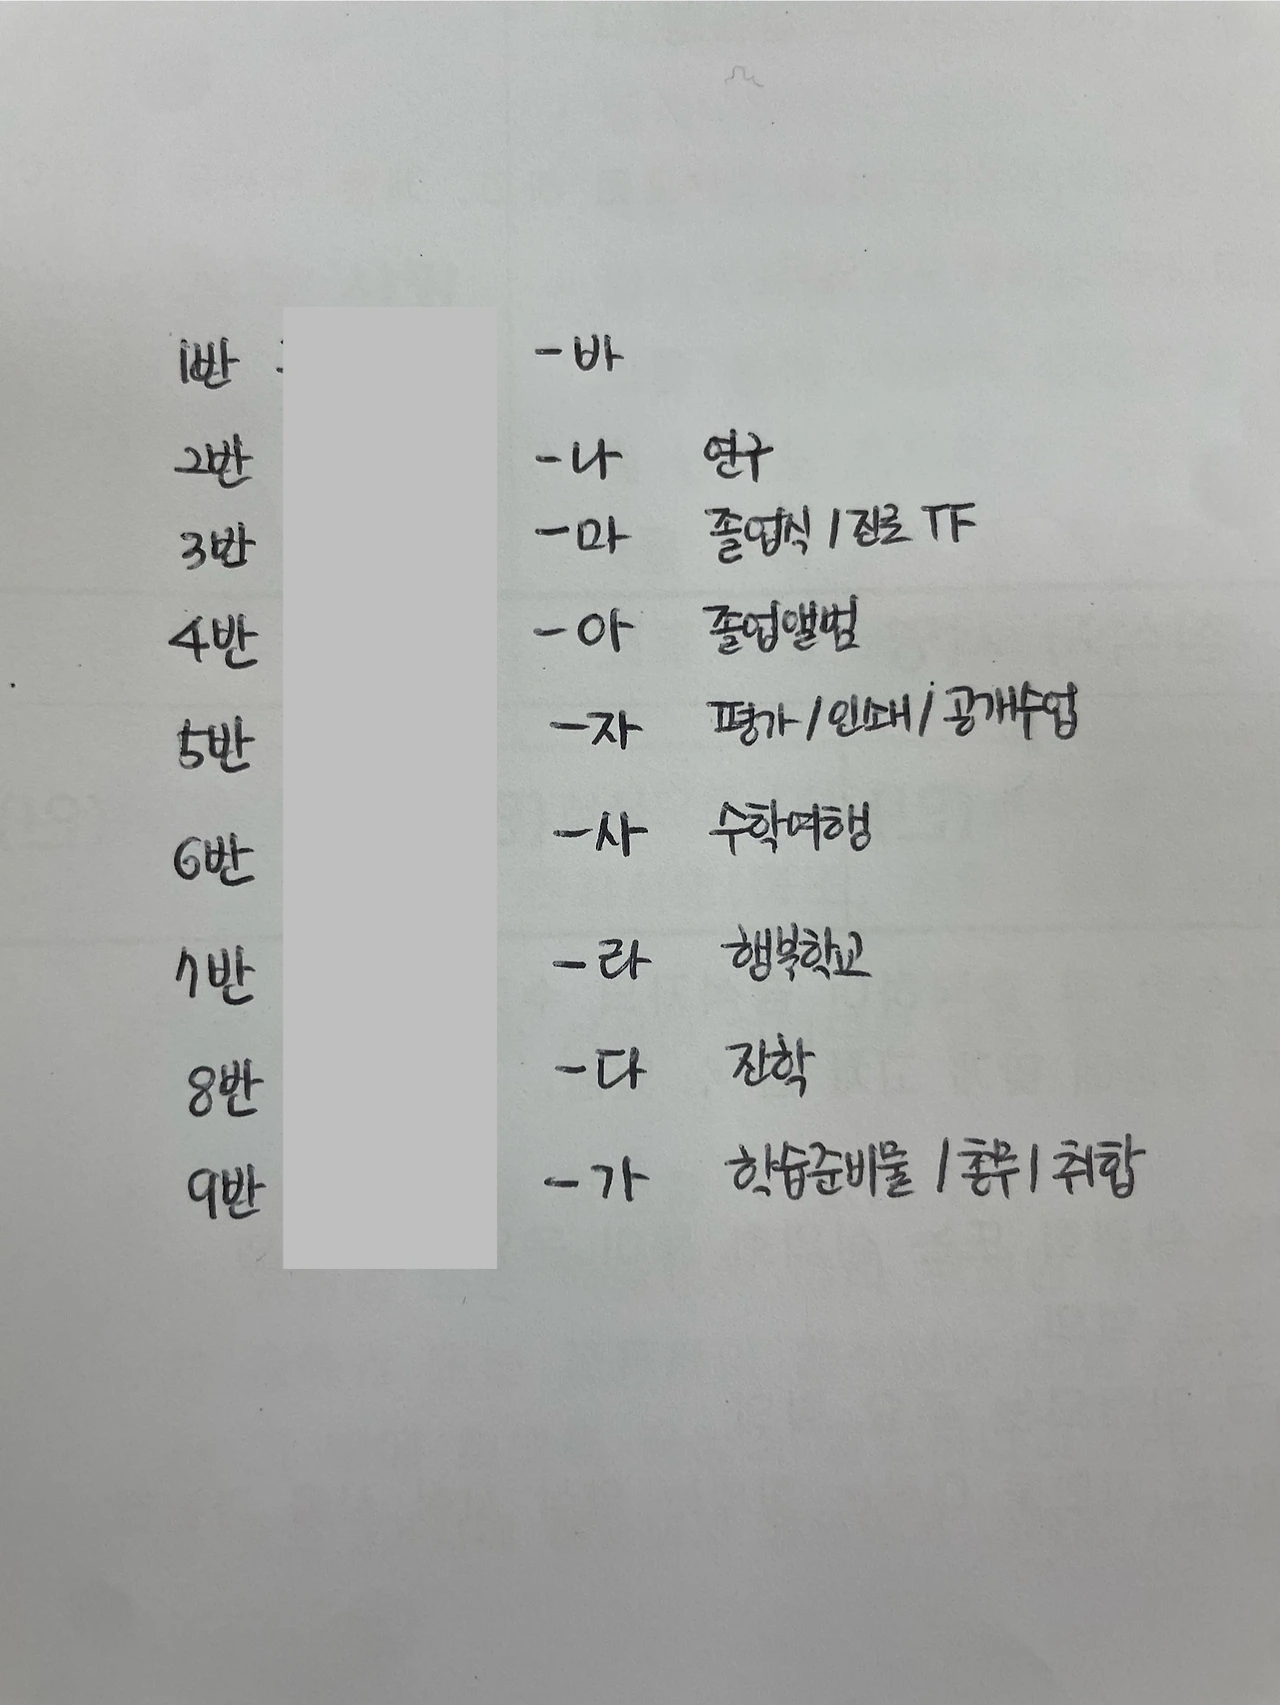 1반 - 바
2반 - 나 연구
3반 - 마 졸업식 / 진로 TF
4반 - 아 졸업앨범
5반 - 자 평가 / 인쇄 / 공개수업
6반 - 사 수학여행
7반 - 라 행복학교
8반 - 다 진학
9반 - 가 학습준비물 / 총무 / 취합